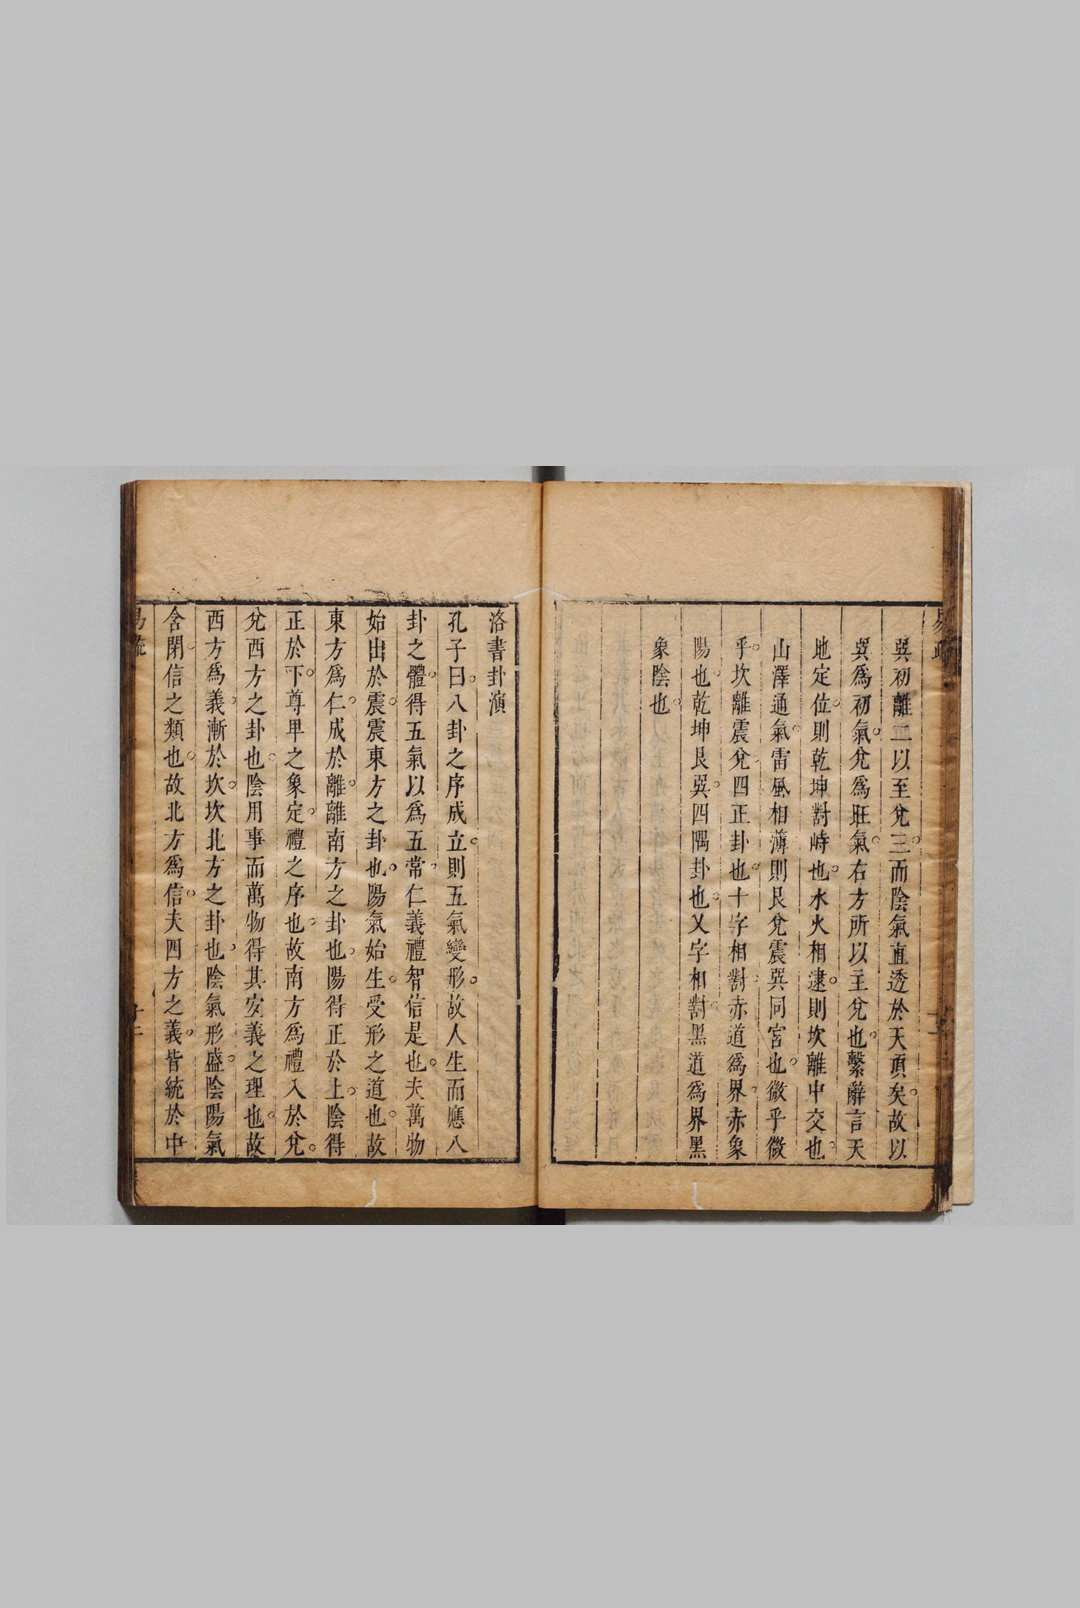 巽初離二以至兌三而陰氣直透於天頂矣故以
巽爲初氣兌爲旺氣右方所以主兌也繫辭言天
地定位則乾坤對峙也水火相逮則坎離中交也
山澤通氣雷風相薄則艮兌震巽同宮也微乎微
乎坎離震兌四正卦也十字相對赤道爲界赤象
陽也乾坤艮巽四隅卦也乂字相對黑道爲界黑
象陰也
洛書卦演
孔子曰八卦之序成立則五氣變形故人生而應八
卦之體得五氣以爲五常仁義禮智信是也夫萬物
始出於震震東方之卦也陽氣始生受形之道也故
東方爲仁成於離離南方之卦也陽得正於上陰得
正於下尊卑之象定禮之序也故南方爲禮入於兌
兌西方之卦也陰用事而萬物得其宜義之理也故
西方爲義漸於坎坎北方之卦也陰氣形盛陰陽氣
含閉信之類也故北方爲信夫四方之義皆統於中